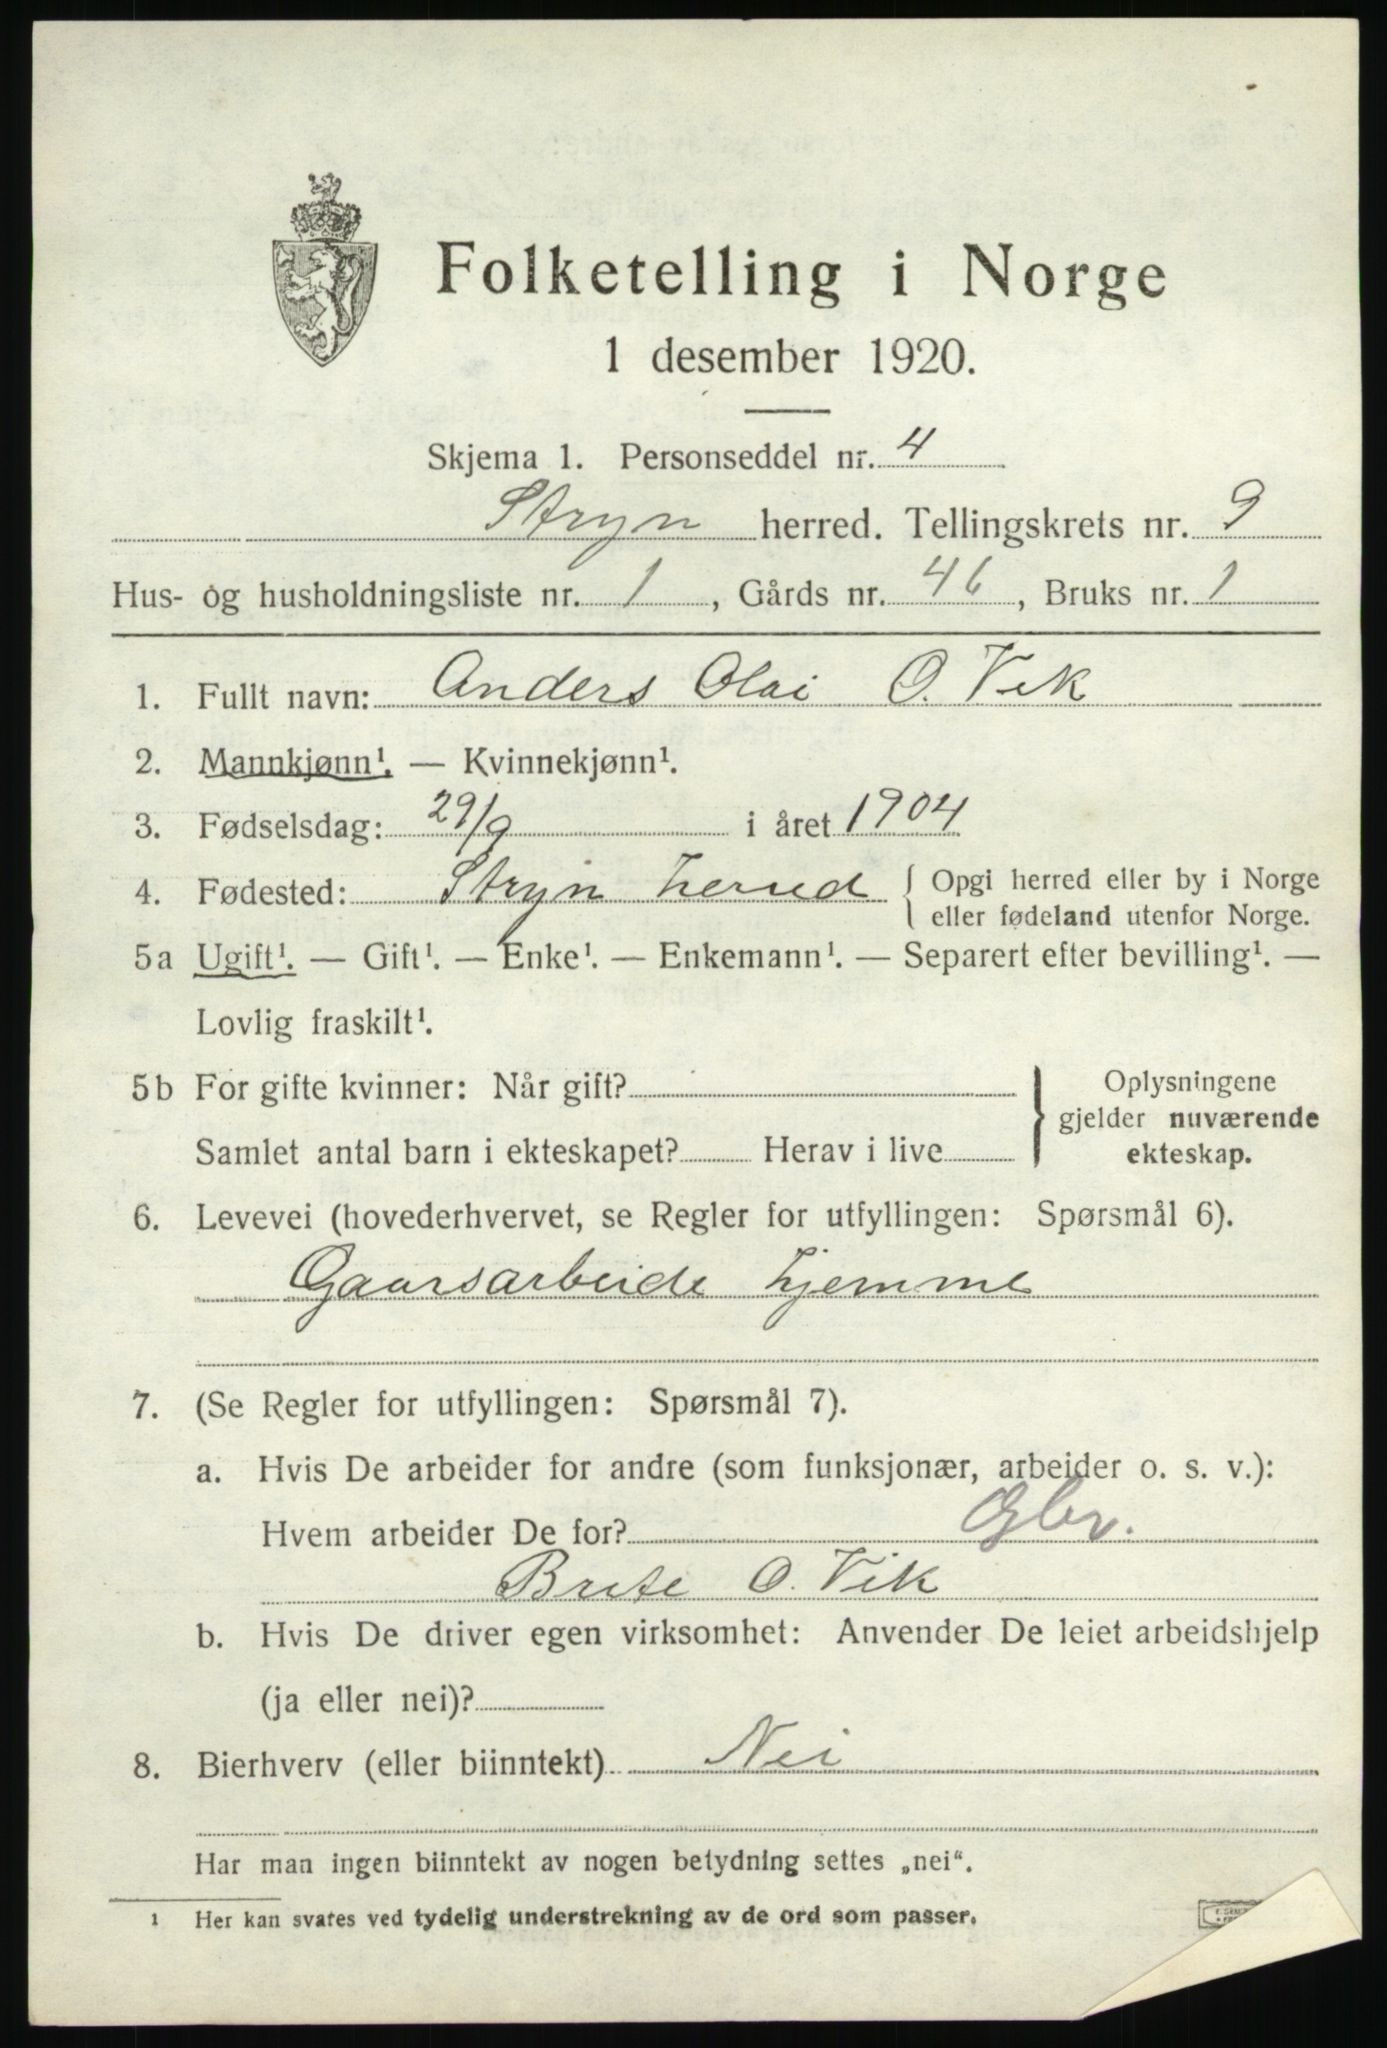 Folketelling i Norge
1 desember 1920.
Skjema 1. Personseddel nr. 4
Stryn herred. Tellingskrets nr. 9
Hus- og husholdningsliste nr. 1, Gårds nr. 46, Bruks nr. 1
1. Fullt navn: Anders Olai O. Vik
2. Mannkjønn¹. — Kvinnekjønn¹.
3. Fødselsdag: 29/9 i året 1904
4. Fødested: Stryn herred { Opgi herred eller by i Norge
eller fødeland utenfor Norge.
5a Ugift¹. — Gift¹. — Enke¹. — Enkemann¹. — Separert efter bevilling¹. —
Lovlig fraskilt¹.
5b For gifte kvinner: Når gift? } Oplysningene
gjelder nuværende
Samlet antal barn i ekteskapet? Herav i live ekteskap.
6. Levevei (hovederhvervet, se Regler for utfyllingen: Spørsmål 6).
Gaarsarbeide hjemme
7. (Se Regler for utfyllingen: Spørsmål 7).
a. Hvis De arbeider for andre (som funksjonær, arbeider o. s. v.):
Hvem arbeider De for? Gbr.
Brite O. Vik
b. Hvis De driver egen virksomhet: Anvender De leiet arbeidshjelp
(ja eller nei)?
8. Bierhverv (eller biinntekt) Nei
Har man ingen biinntekt av nogen betydning settes „nei“.
¹ Her kan svares ved tydelig understrekning av de ord som passer.